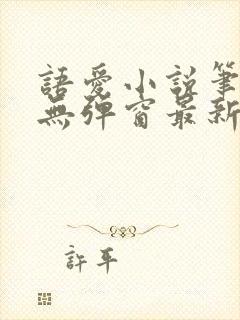 語愛小說筆
無彈窗最新
許平